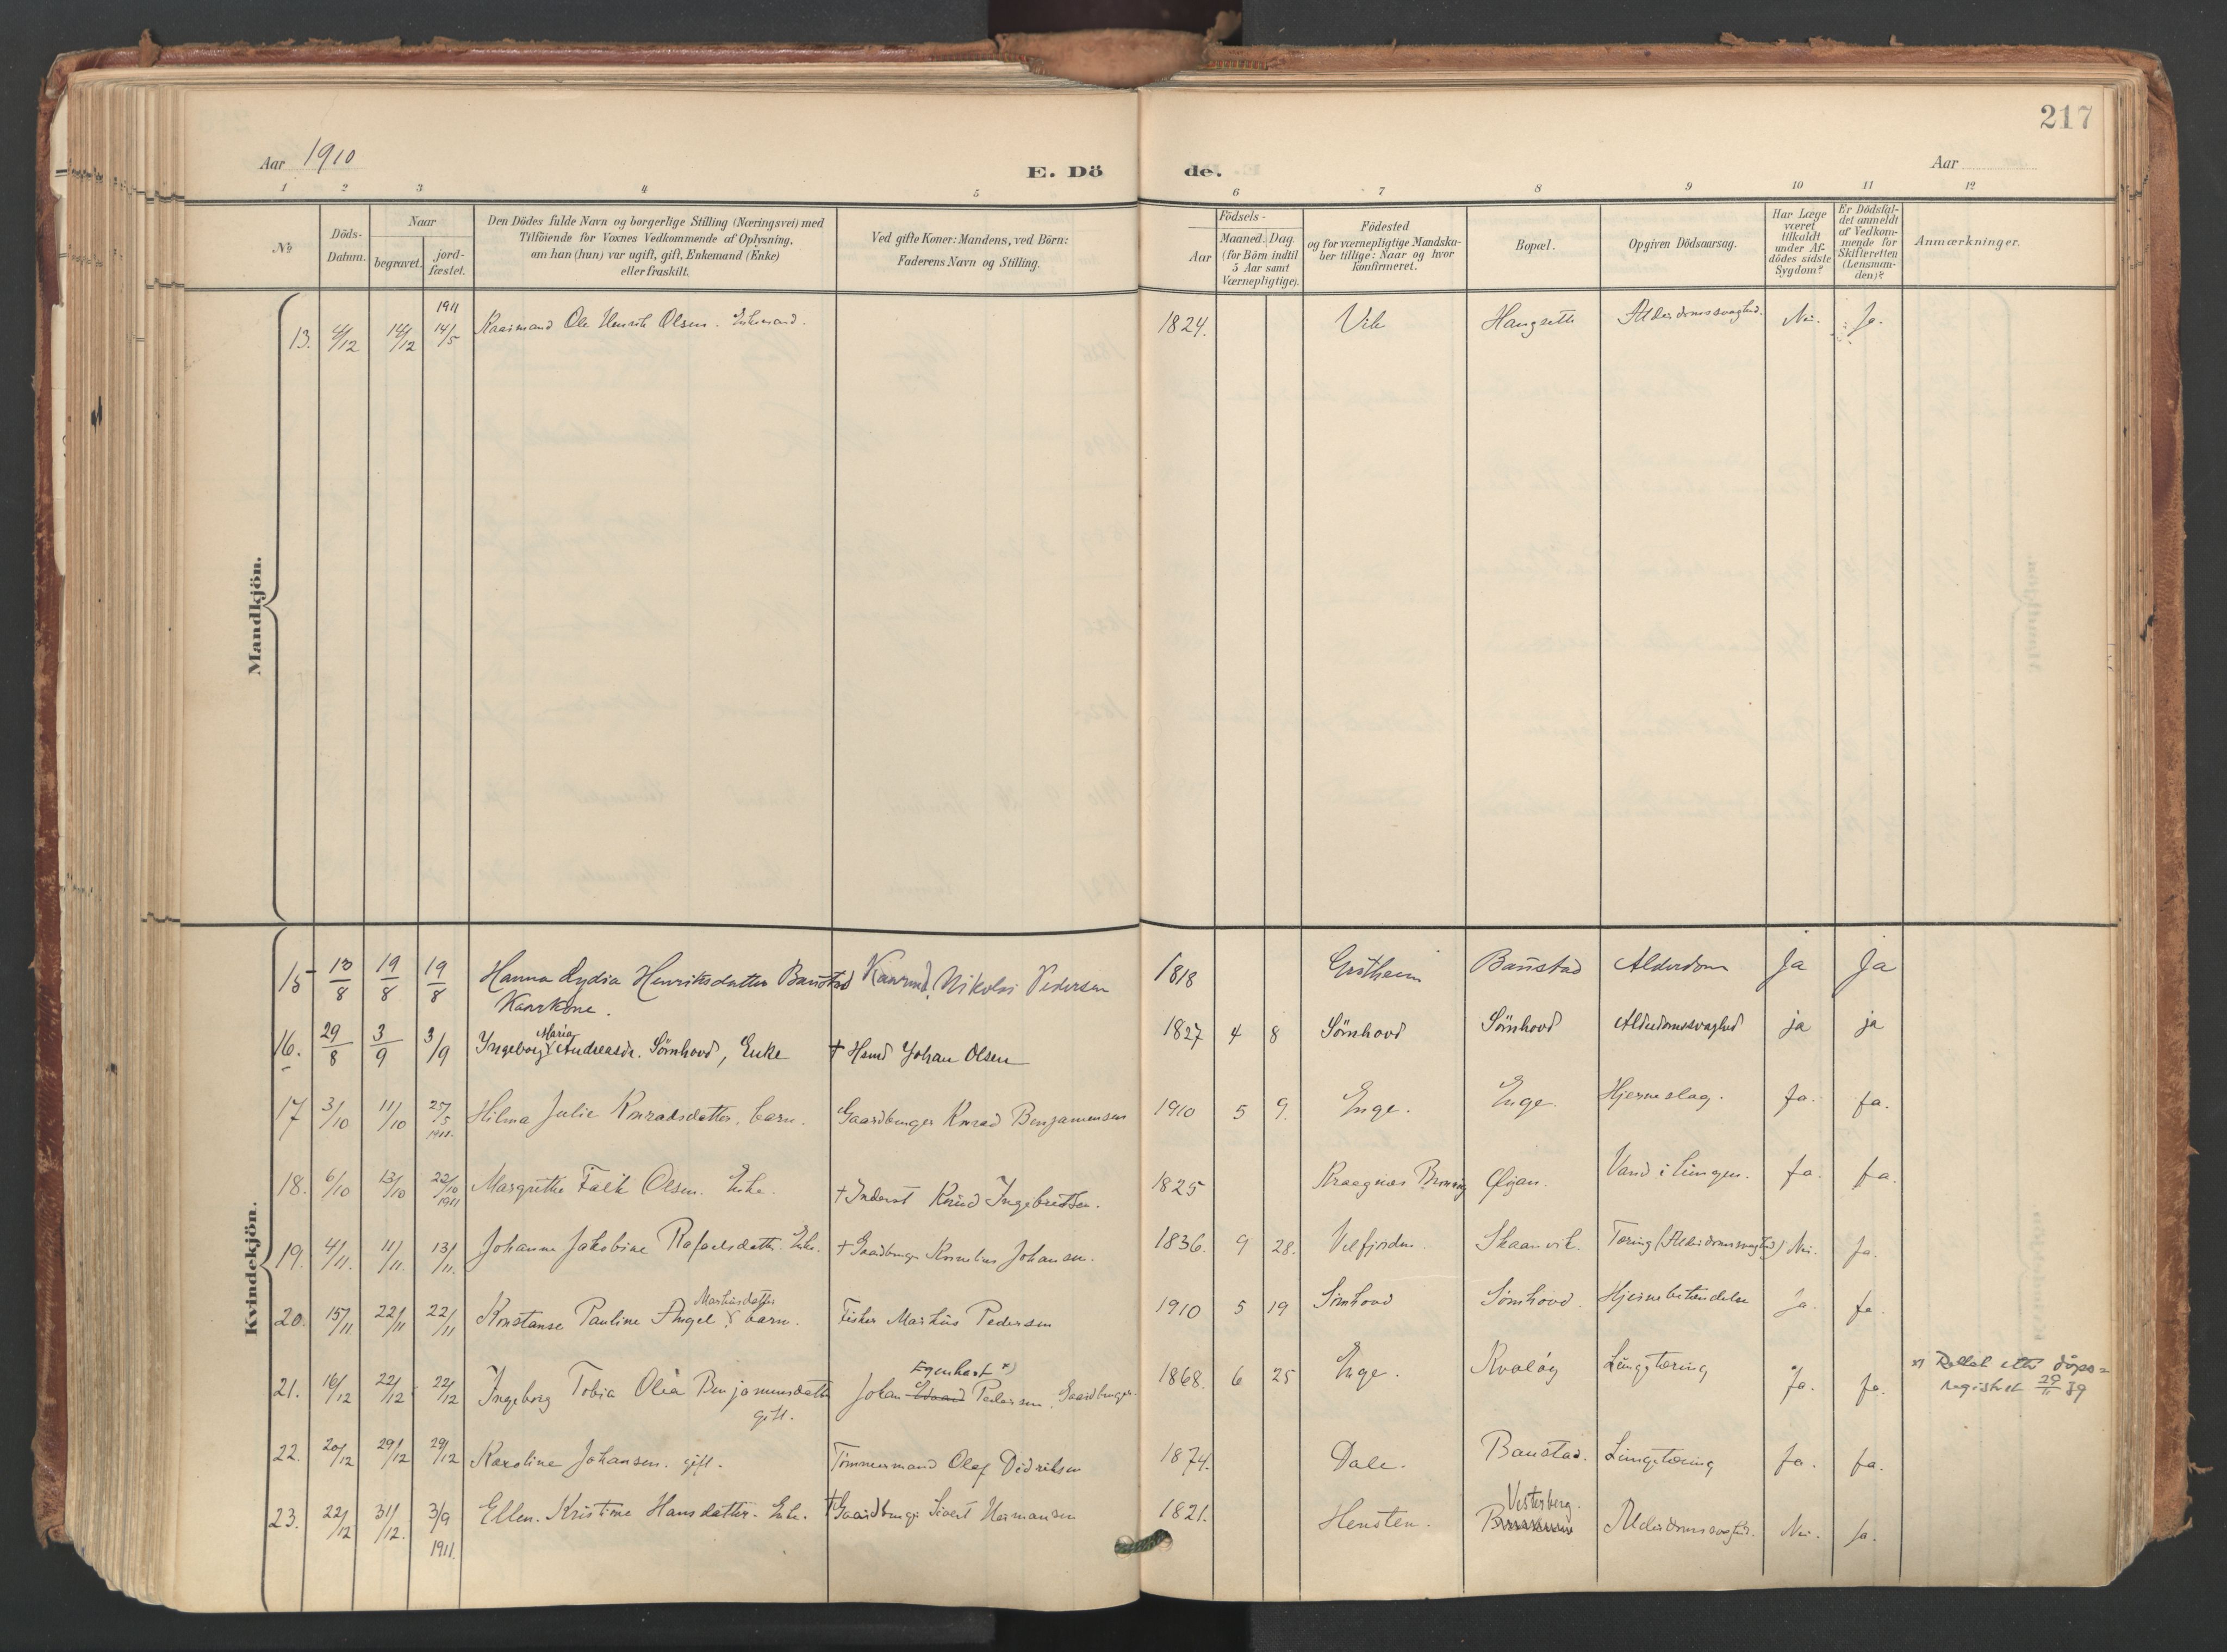 217
Aar 1910
E. Döde.
Aar
1 2 3 4 5 6 7 8 9 10 11 12
No
Döds-Datum.
Naar
begravet.
jord-fæstet.
Den Dödes fulde Navn og borgerlige Stilling (Næringsvei) med
Tilföiende for Voxnes Vedkommende af Oplysning,
om han (hun) var ugift, gift, Enkemand (Enke)
eller fraskilt.
Ved gifte Koner: Mandens, ved Börn:
Faderens Navn og Stilling.
Födsels-
Aar
Maaned. Dag
(for Börn indtil
5 Aar samt
Værnepligtige).
Födested
og for værnepligtige Mandska-
ber tillige: Naar og hvor
konfirmeret.
Bopæl.
Opgiven Dödsaarsag.
Har Læge
været
tilkaldt
under Af-
dödes sidste
Sygdom?
Er Dödsfal-
det anmeldt
af Vedkom-
mende for
Skifteretten
(Lensman-
den)?
Anmærkninger.
Mandkjön.
1911
13. 4/12 14/12 14/5 Kaarmand Ole Henrik Olsen. Enkemand. 1824. Vik Haugseth Alderdomssvaghed. Nei. Ja.
Kvindekjön.
15 13/8 19/8 19/8 Hanna Lydia Henriksdatter Baustad Kaarmd. Nikolai Pedersen 1818 Grötheim Baustad Alderdom Ja Ja
Kaarkone.
16. 29/8 3/9 3/9 Ingeborg Maria Andreasdr. Sömhovd, Enke † Hsmd Johan Olsen 1827 4 8 Sömhovd Sömhovd Alderdomssvaghed ja ja
17 3/10 11/10 27/5 1911. Hilma Julie Konradsdatter, barn. Gaardbruger Konrad Benjamensen 1910 5 9. Enge. Enge. Hjerneslag. Ja. Ja.
18. 6/10 13/10 22/10 1911 Margrethe Falk Olsen. Enke. † Inderst Knud Ingebrigtsen. 1825 Kraagnes Brönnöy Öyjan. Vand i Lungen. Ja. Ja.
19. 4/11. 11/11. 13/11. Johanne Jakobine Rafaelsdatter. Enke. † Gaardbruger Kornelius Johansen. 1836. 9 28. Velfjorden Skaanvik. Tæring (Alderdomssvaghed) Nei. Ja.
20. 15/11 22/11 22/11 Konstanse Pauline Angel Markusdatter barn. Fisker Markus Pedersen 1910 5 19 Sömhovd Sömhovd. Hjernebetændelse Ja. Ja.
21. 16/12 22/12 22/12 Ingeborg Tobia Olea Benjaminsdatter gift. Johan Egenhart x) Pedersen. Gaardbruger. 1868. 6 25 Enge. Kvalöy Lungetæring Ja. Ja. x) Rettet etter dåps-
registret 29/11 39
22. 20/12 29/12 29/12 Karoline Johansen. gift. Tömmermand Olaf Didriksen 1874. Dale. Baustad. Lungetæring Ja. Ja.
23. 22/12 31/12. 3/9 1911. Ellen Kristine Hansdatter. Enke. † Gaardbruger Sivert Hermansen 1821. Hensten. Vesterberg. Alderdomssvaghed. Nei. Ja.